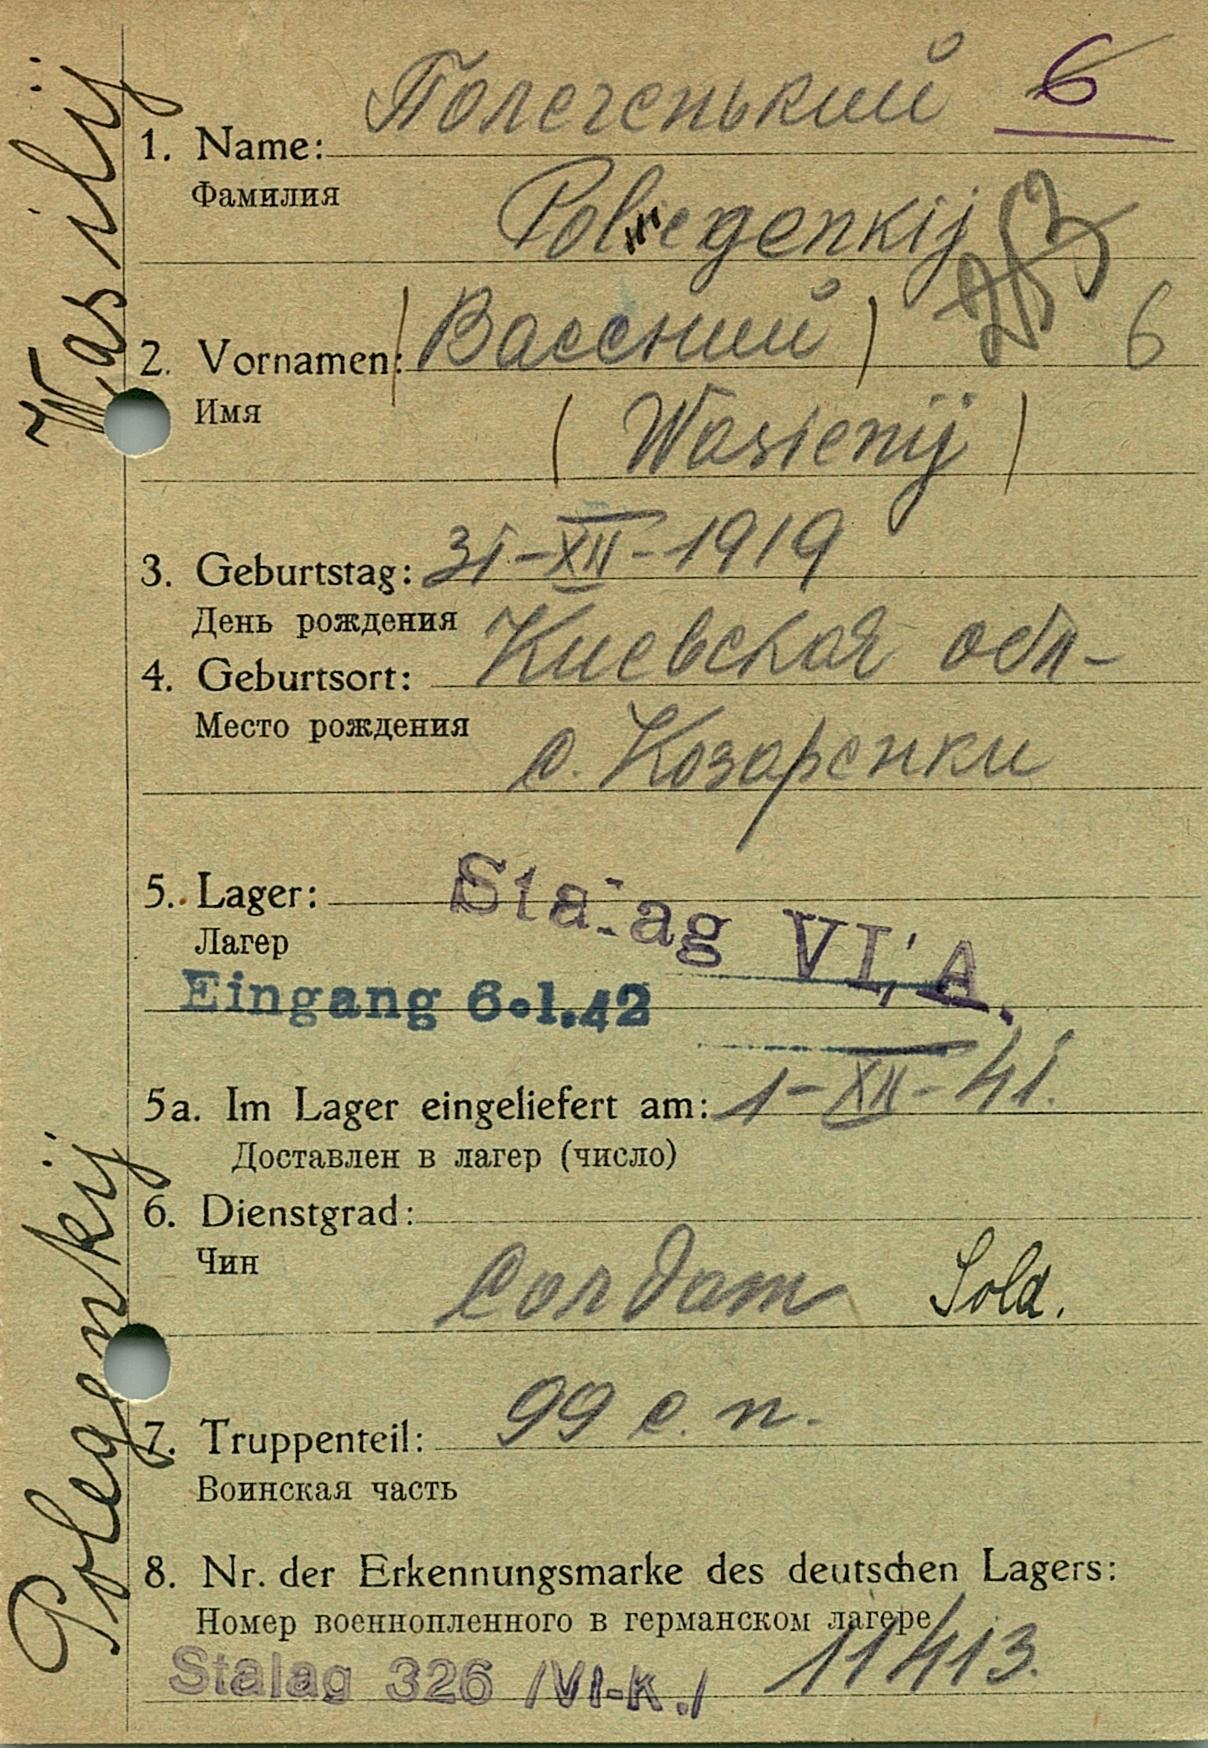 Полегенький 6
1. Name:
Фамилия
Poliegenkij
253
2. Vornamen: (Васений)
6
Имя
(Wasienij)
3. Geburtstag: 31-XII-1919
День рождения
4. Geburtsort: Киевская обл-
Место рождения
с. Козаренки
5. Lager: Stalag VI/A.
Лагер
Eingang 6.1.42
5a. Im Lager eingeliefert am: 1-XII-41.
Доставлен в лагер (число)
6. Dienstgrad:
Чин
Солдат Sold.
7. Truppenteil: 99 с. п.
Воинская часть
8. Nr. der Erkennungsmarke des deutschen Lagers:
Номер военнопленного в германском лагере
11413.
Stalag 326 /VI-K./
Polegenkij Wasilij